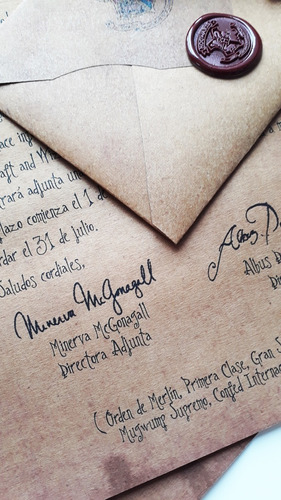 aft and
rará adjunta
lazo comienza el 1 de
dar el 31 de julio.
Saludos cordiales,
Minerva McGonagall
Minerva McGonagall
Directora Adjunta
Albus D
Albus D
Di
( Orden de Merlín, Primera Clase, Gran
Mugwump Supremo, Confed Interna